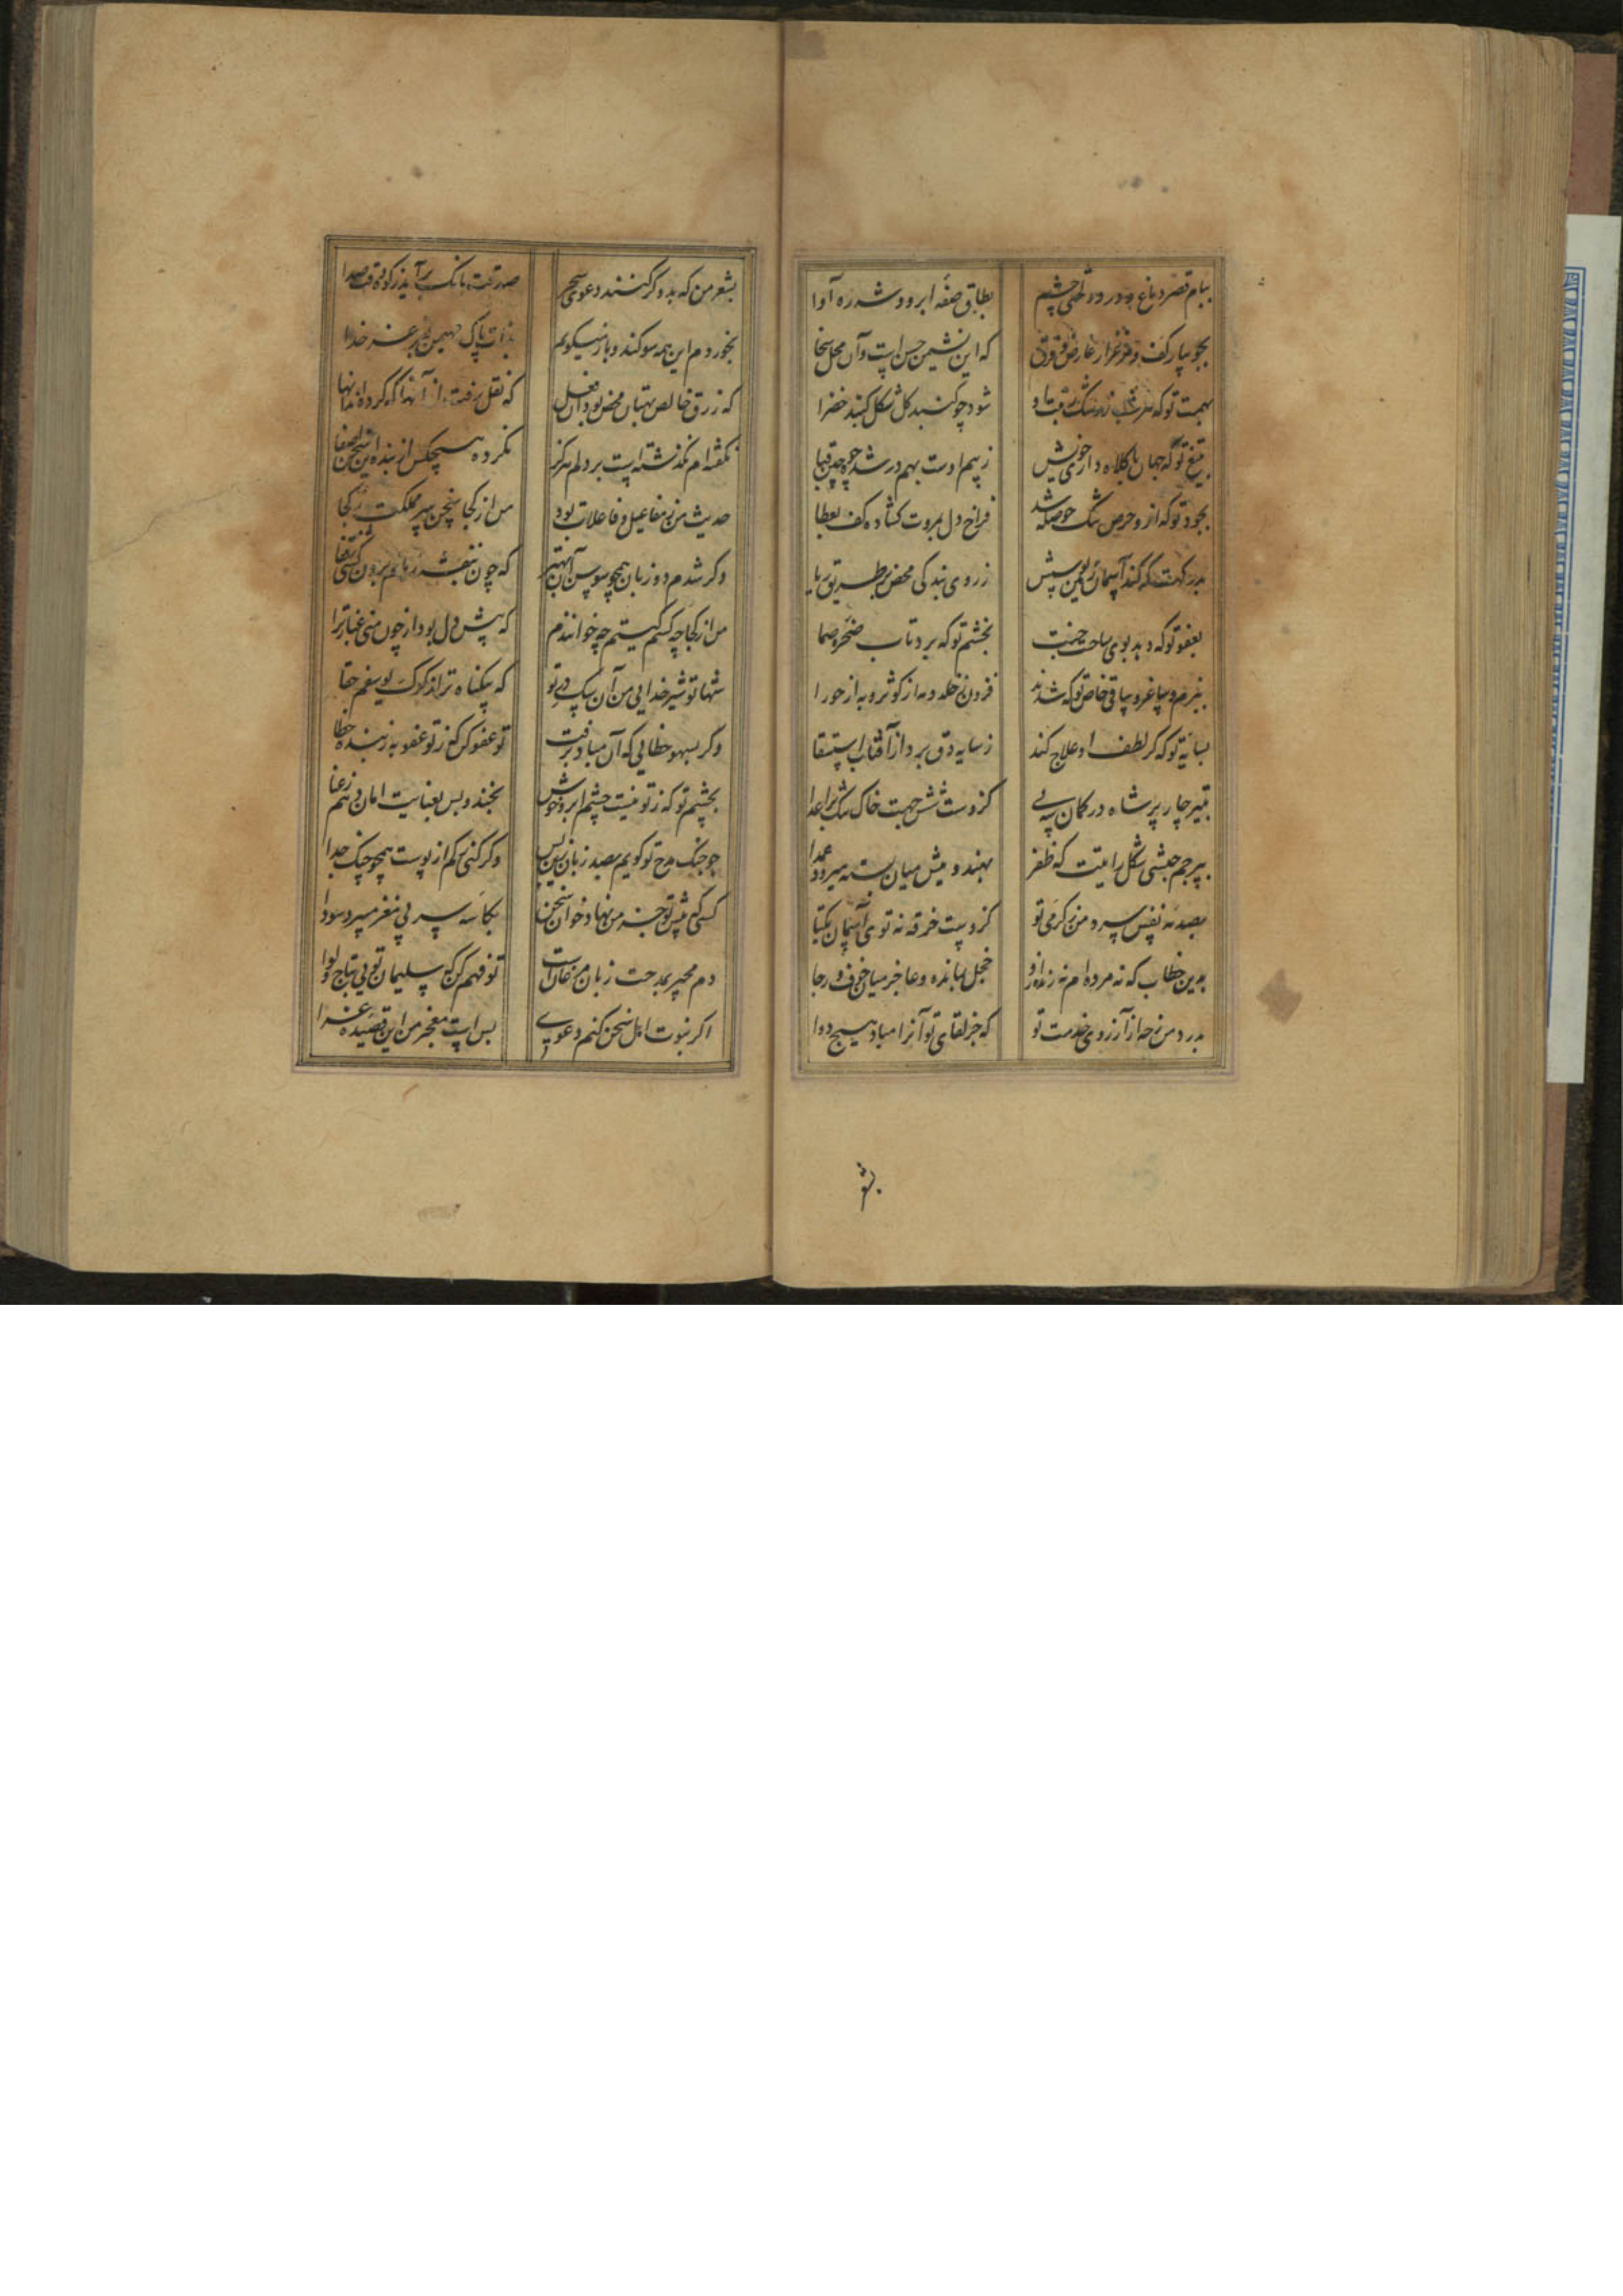 ببام قصر دماغ و دو رودهٔ چشم
بطاق صفهٔ ابرو و شه ره آوا
بجویبار کف و مرغزار عارض و فرق
که این نشیمن حسن است و آن محل سخا
بهمت تو که
شود چو گنبد گل شکل گنبد خضرا
بتیغ تو که جهان با کلاه دار خویش
ز بیم اوست بهم در شده چو چین قبا
بجود تو که ازو حرص تنگ حوصله شد
فراخ دل بمروت گشاده کف بعطا
بدرگهت که کند آسمان زمین بوسش
ز روی بندگی محض بر طریق ریا
بعفو تو که دهد بوی ساحت جنت
بخشم تو که برد تاب صخرهٔ صما
ببزم و ساغر و ساقی خاص تو که شدند
فزون ز خلد و مه از کوثر و به از حورا
بسایهٔ تو که گر لطف او علاج کند
ز سایه دق ببرد از آفتاب استسقا
بتیر چار پر شاه در کمان سه پی
کزوست شش جهت خاک تنگ بر اعدا
بپرچم حبشی شکل رایتت که ظفر
بهند ویش میان بسته میرود عمدا
بصد نه نفس سرد من ز گرمی تو
کزوست خرقه نه توی آسمان یکتا
بدین خطاب که نه مرده ام نه زنده ازو
خجل بمانده و عاجز میان خوف و رجا
بدرد من نه از آرزوی خدمت تو
که جز لقای تو آنرا مباد هیچ دوا
بشو
بشعر من که بدو گر کنند دعوی سحر
صدقت بانگ برآید ز کوه وقت صدا
بخوردم این همه سوگند و باز میگویم
بذات پاک مهیمن بقدر عز خدا
که زرق خالص و بهتان محض بود آن فعل
که نقل رفت از آنها که کرده اند انها
نگفته ام نگذشته است بر دلم هرگز
نکرده هیچکس از بنده این سخن اصغا
حدیث من ز مفاعیل و فاعلات بود
من از کجا سخن سر مملکت ز کجا
وگر شدم دو زبان همچو سوسن
که چون بنفشه زبانم برون کشی ز قفا
من از کجا چه کسم کیستم چه خوانندم
که پیش دل بود از چون منی غبار ترا
شها تو شیر خدایی من آن سگ در تو
که بیگناه تر از گرگ یوسفم حقا
وگر بسهو خطایی که آن مباد برفت
تو عفو کن که ز تو عفو به ز بنده خطا
بچشم تو که ز تو نیست چشم ابروی خوش
بخند و بس بعنایت امان دهم ز عنا
چو چنگ مدح تو گویم بصد زبان زین پس
وگر کنی رگم از پوست همچو چنگ جدا
کسی که پیش تو جز من نهاد خوان سخن
بکاسه سر بی مغز میپزد سودا
دم محیر مدحت زبان مرغان است
تو فهم کن که سلیمان تویی بتاج و لوا
اگر نبوت اهل سخن کنم دعوی
بس است معجز من این قصیدهٔ غرا